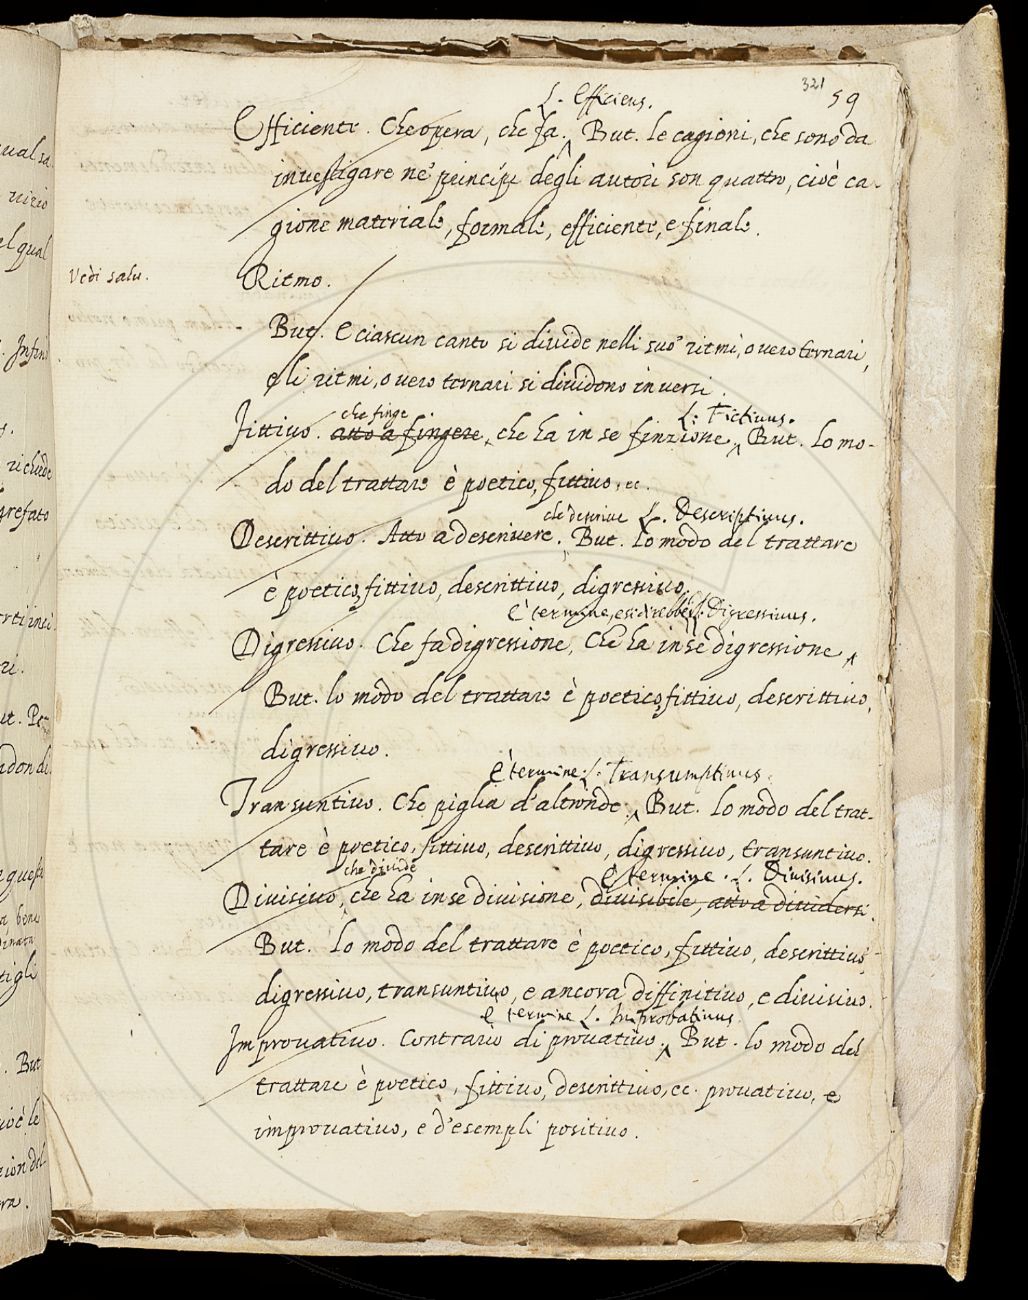 321
59
L. Efficiens.
Efficiente. Che opera, che fa. But. le cagioni, che sono da
investigare ne' principj degli autori son quattro, cioè ca-
gione materiale, formale, efficiente, e finale.
Vedi salu.
Ritmo.
But. E ciascun canto si divide nelli suo' ritmi, o vero ternari,
e li ritmi, o vero ternari si dividono in versi.
che finge
L. Fictivus.
Fittivo. atto a fingere, che ha in se finzione. But. Lo mo-
do del trattare è poetico, fittivo, ec.
che descrive L. Descriptivus.
Descrittivo. Atto a descrivere. But. Lo modo del trattare
è poetico, fittivo, descrittivo, digressivo.
È termine, e si direbbe L. Digressivus.
Digressivo. Che fa digressione, Che ha in se digressione
But. lo modo del trattare è poetico, fittivo, descrittivo,
digressivo.
È termine L. Transumptivus.
Transuntivo. Che piglia d'altronde. But. Lo modo del trat-
tare è poetico, fittivo, descrittivo, digressivo, transuntivo.
che divide
È termine. L. Divisivus.
Divisivo, che ha in se divisione, divisibile, atto a dividersi.
But. Lo modo del trattare è poetico, fittivo, descrittivo,
digressivo, transuntivo, e ancora diffinitivo, e divisivo.
È termine L. Improbativus.
Improvativo. Contrario di provativo. But. lo modo del
trattare è poetico, fittivo, descrittivo, ec. provativo, e
improvativo, e d'esempli positivo.